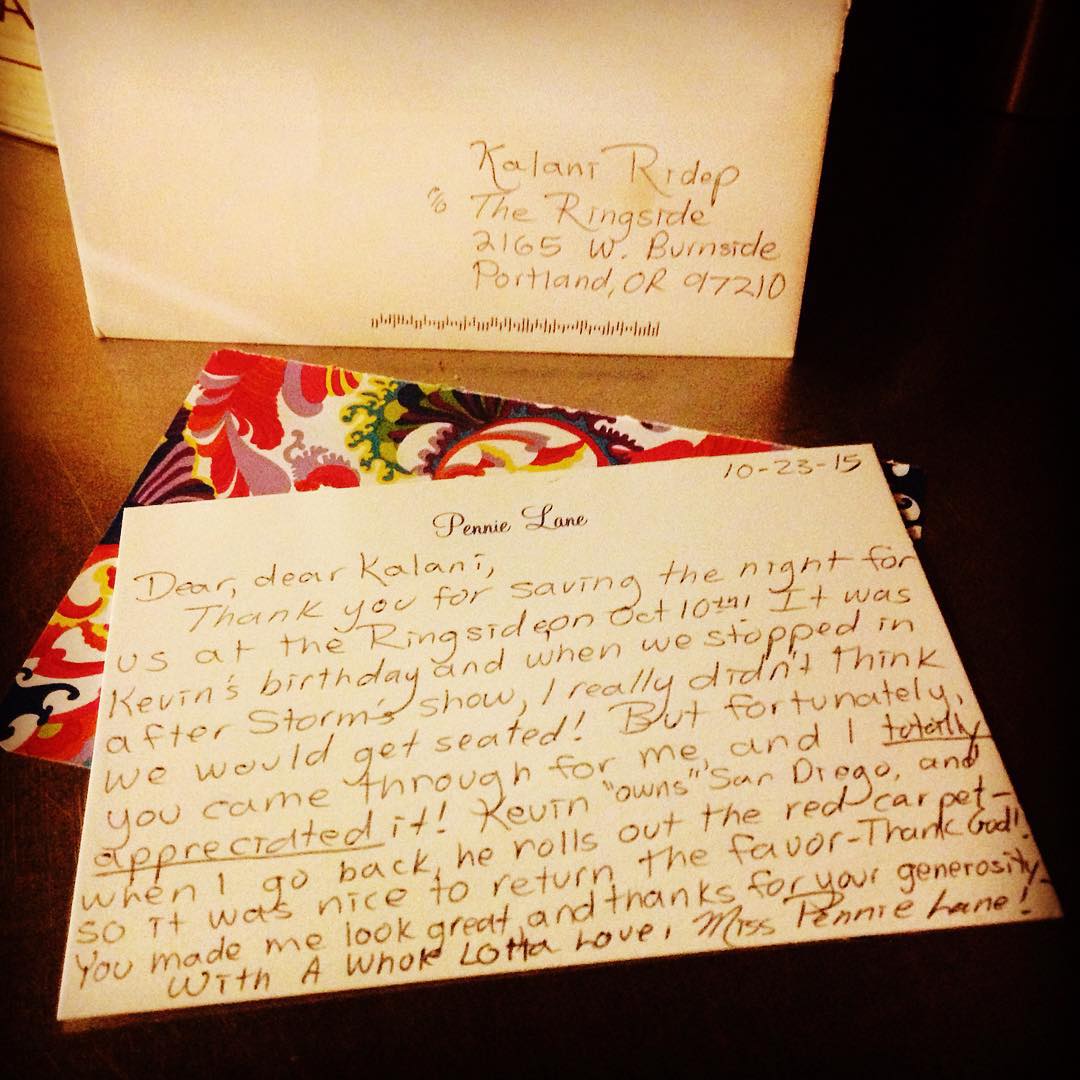 Kalani Ridep
c/o The Ringside
2165 W. Burnside
Portland, OR 97210
10-23-15
Pennie Lane
Dear, dear Kalani,
Thank you for saving the night for
us at the Ringside on Oct 10th! It was
Kevin's birthday and when we stopped in
after Storm's show, I really didn't think
we would get seated! But fortunately,
you came through for me, and I totally
appreciated it! Kevin "owns" San Diego, and
when I go back, he rolls out the red carpet-
so it was nice to return the favor-Thank God!
You made me look great, and thanks for your generosity-
With A Whole Lotta Love, Miss Pennie Lane!